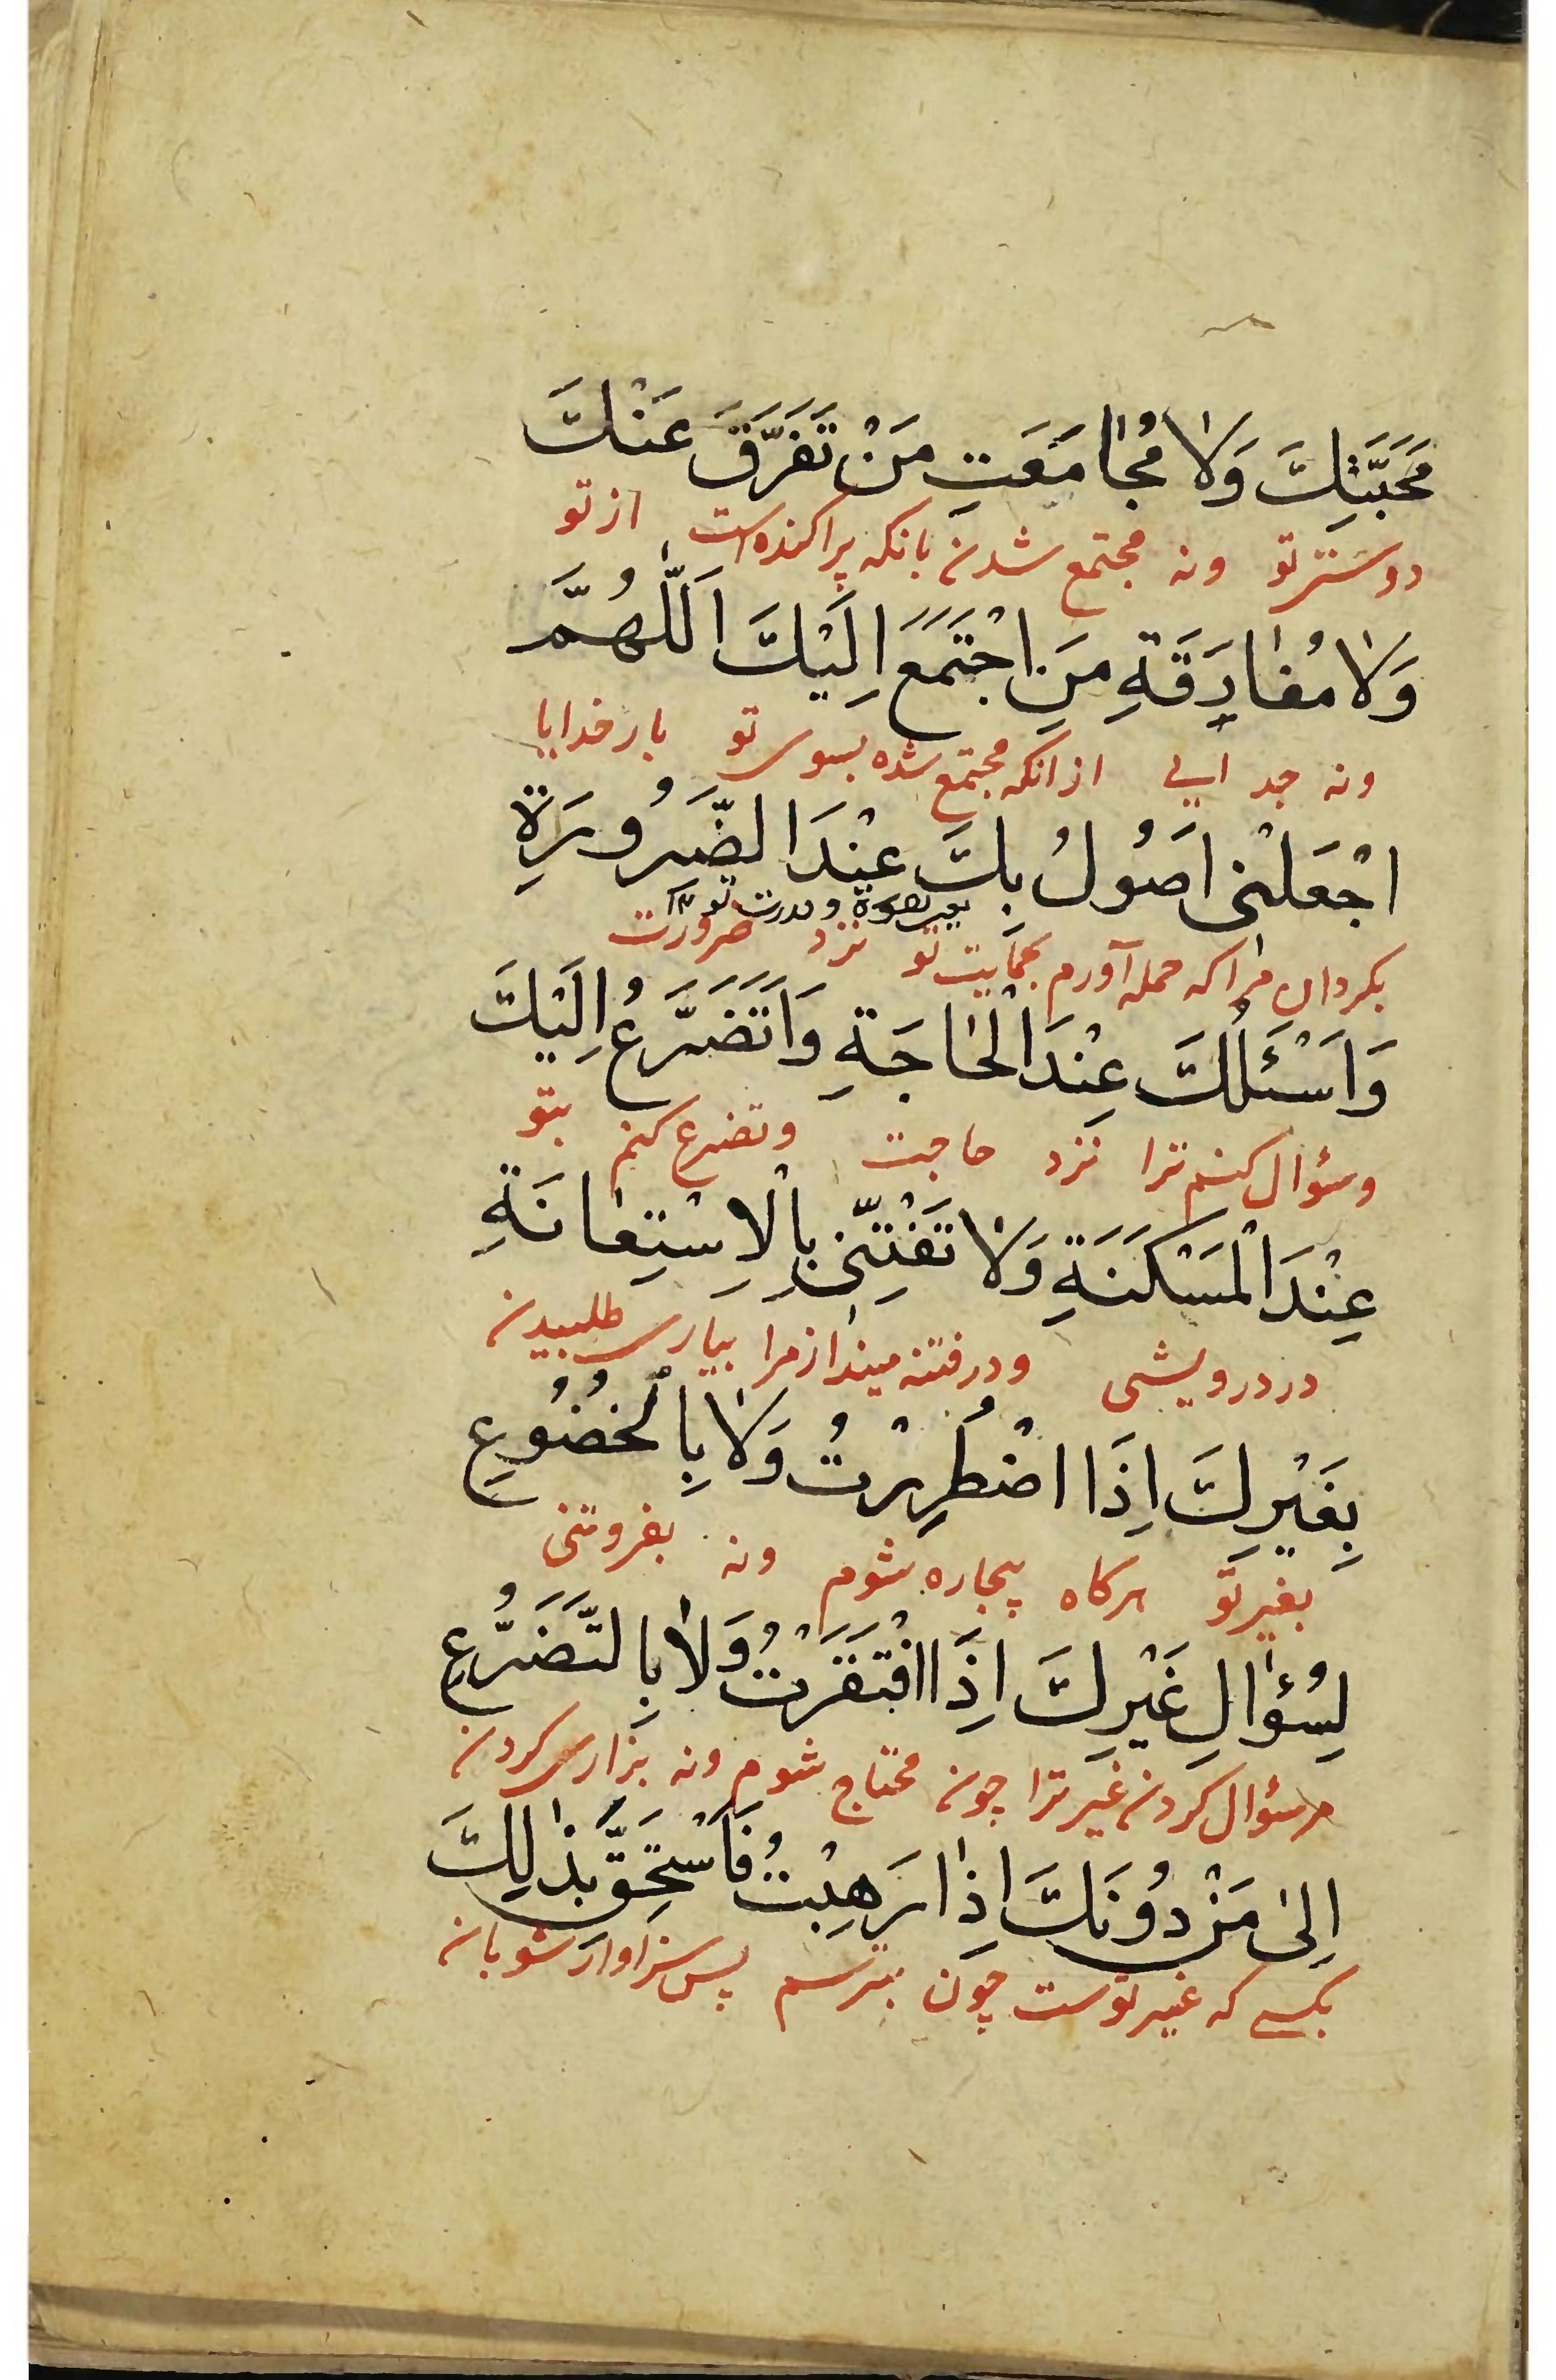 مَحَبَّتِكَ وَلَا مُجَامَعَتِ مَنْ تَفَرَّقَ عَنْكَ
دوستر تو ونه مجتمع شدن بانکه پراکنده است از تو
وَلَا مُفَارَقَةِ مَنِ اجْتَمَعَ اِلَيْكَ اَللّٰهُمَّ
ونه جدایی ازانکه مجتمع شده بسوی تو بار خدایا
اجْعَلْنى اَصُولُ بِكَ عِنْدَ الضَّرُورَةِ
بقوة و قدرت تو
بکردان مرا که حمله آورم بحمایت تو نزد ضرورت
وَاَسْئَلُكَ عِنْدَ الْحَاجَةِ وَاَتَضَرَّعُ اِلَيْكَ
وسؤال کنم ترا نزد حاجت وتضرع کنم بتو
عِنْدَ الْمَسْكَنَةِ وَلَا تَفْتِنّى بِالْاِسْتِعَانَةِ
در درویشی ودر فتنه مینداز مرا بیاری طلبیدن
بِغَيْرِكَ اِذَا اضْطُرِرْتُ وَلَا بِالْخُضُوعِ
بغیر تو هرکاه بیچاره شوم ونه بفروتنی
لِسُؤَالِ غَيْرِكَ اِذَا افْتَقَرْتُ وَلَا بِالتَّضَرُّعِ
مر سؤال کردن غیر ترا چون محتاج شوم ونه بزاری کردن
اِلىٰ مَنْ دُونَكَ اِذَا رَهِبْتُ فَاَسْتَحِقَّ بِذٰلِكَ
بکسے که غیر توست چون بترسم پس سزاوار شو بان